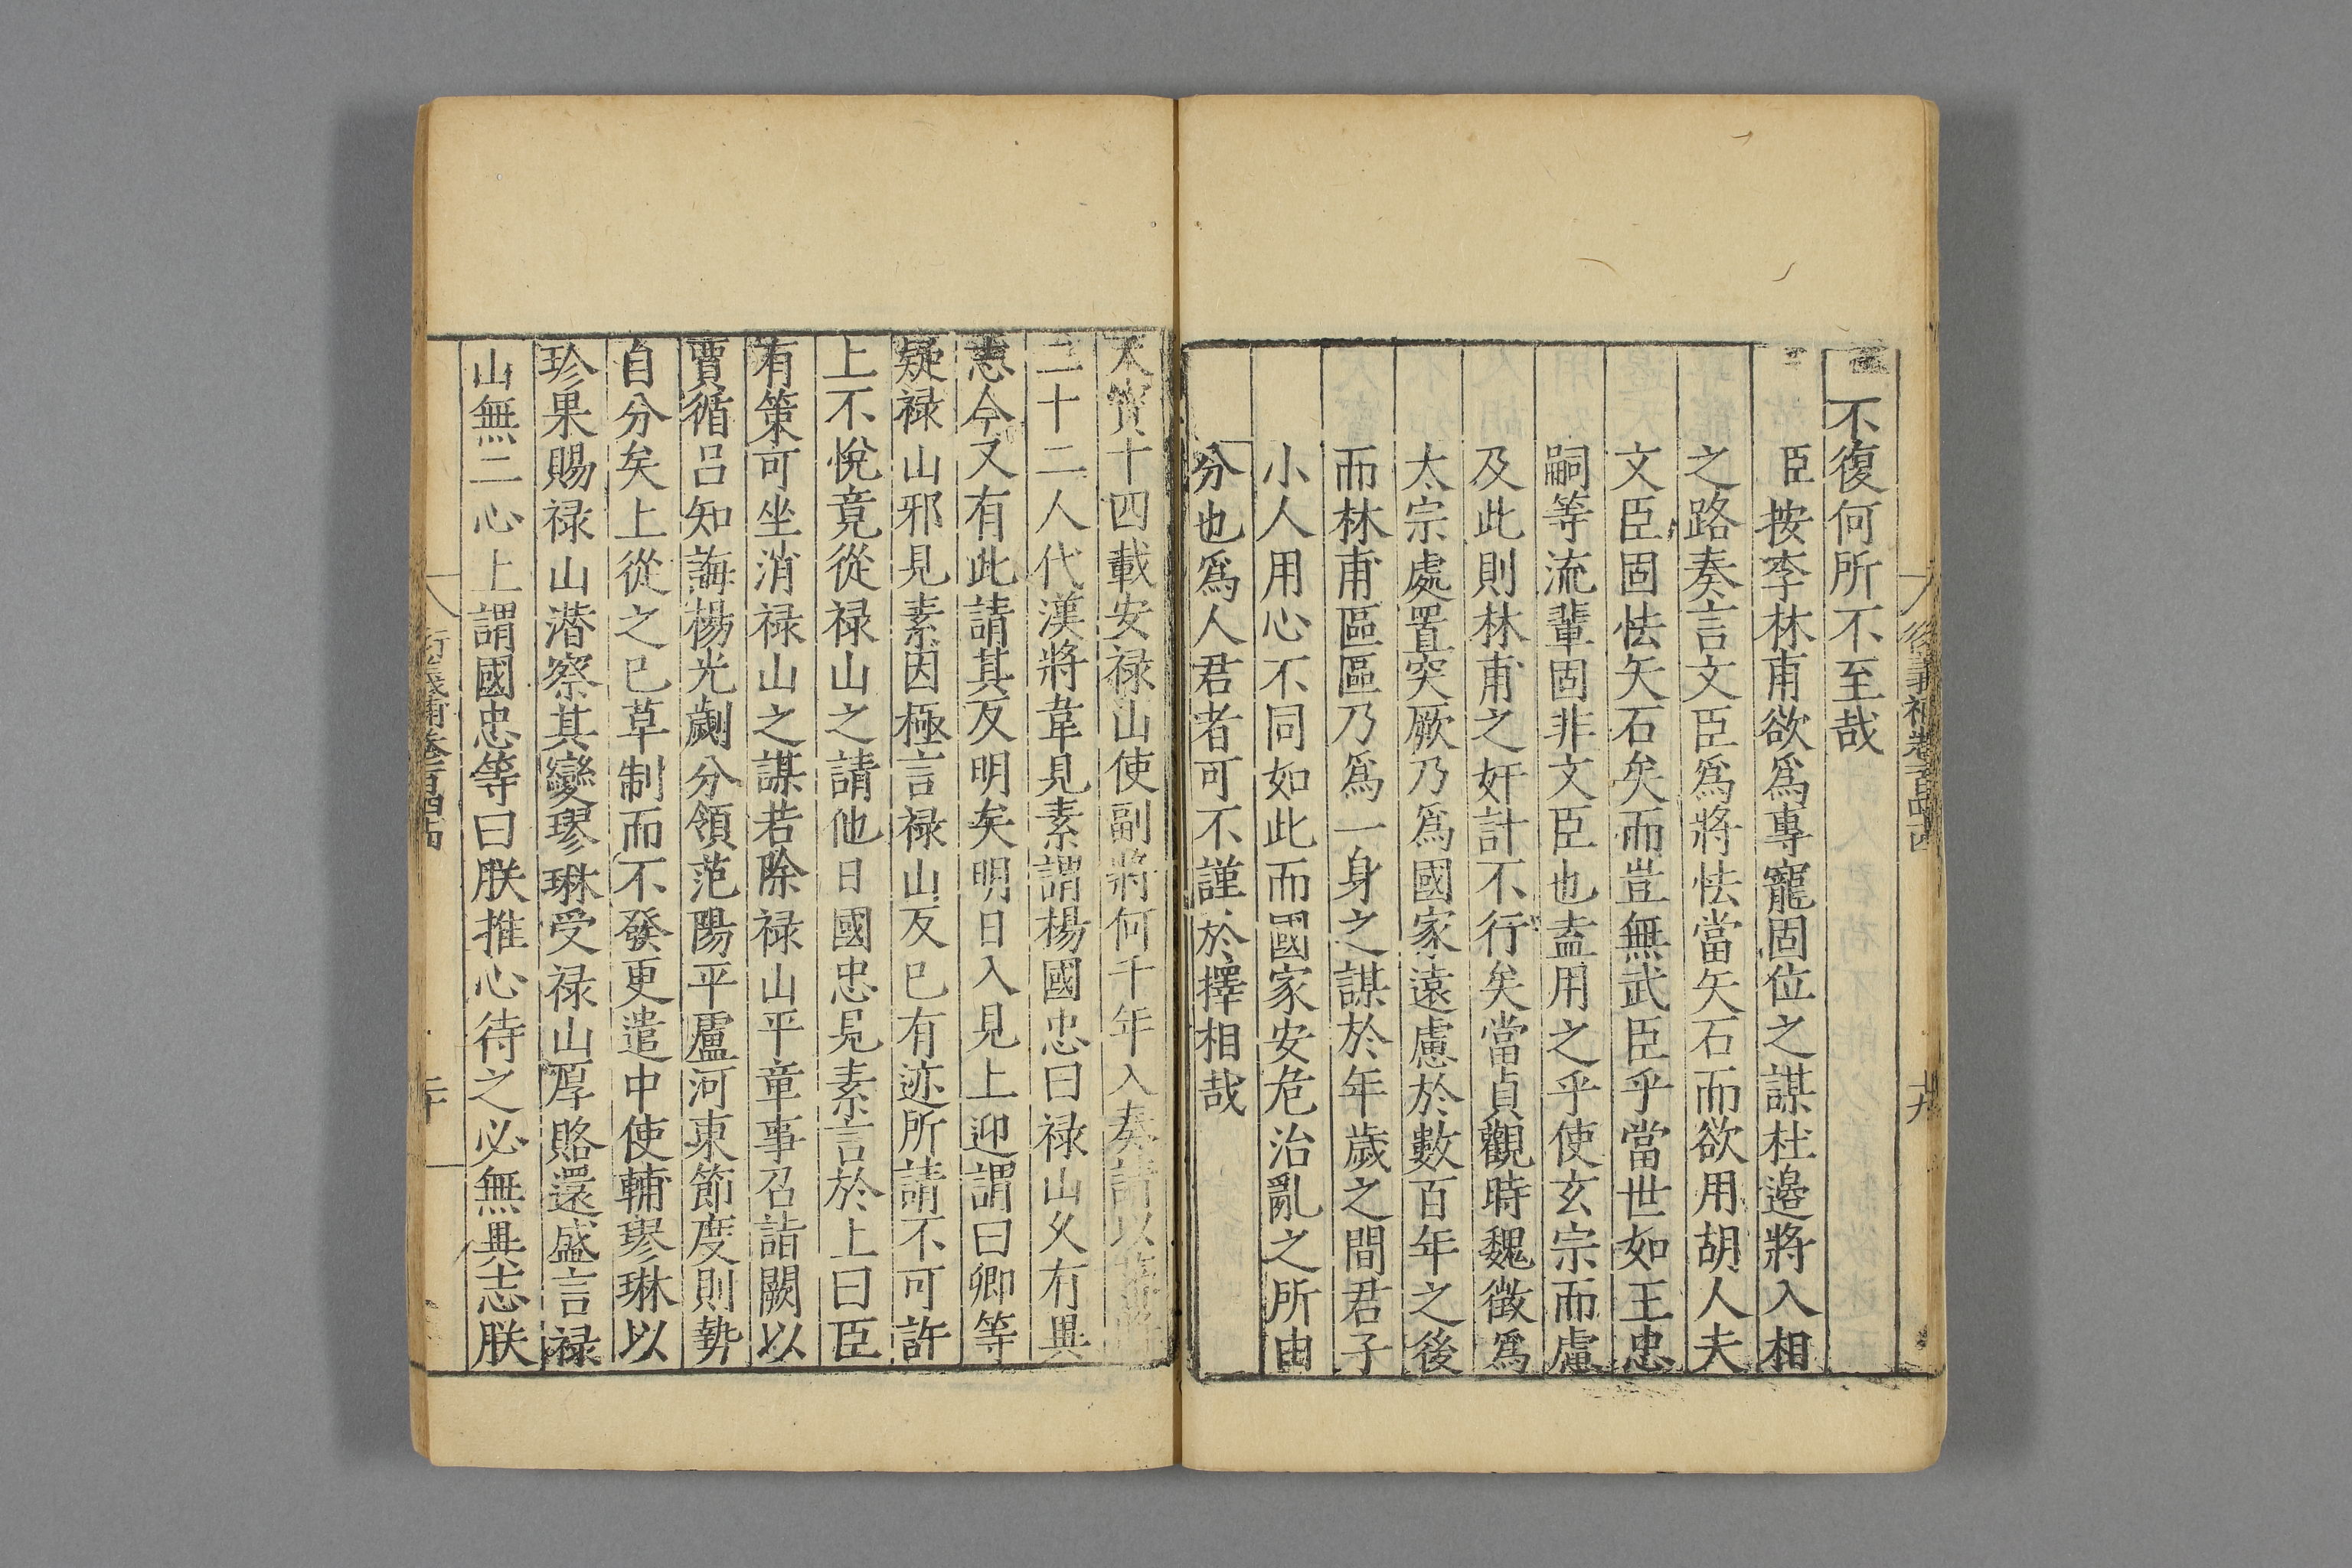 不復何所不至哉
臣按李林甫欲爲專寵固位之謀杜邉將入相
之路奏言文臣爲將怯當矢石而欲用胡人夫
文臣固怯矢石矣而豈無武臣乎當世如王忠
嗣等流輩固非文臣也盍用之乎使玄宗而慮
及此則林甫之奸計不行矣當貞觀時魏徵爲
太宗處置突厥乃爲國家遠慮於數百年之後
而林甫區區乃爲一身之謀於年歲之間君子
小人用心不同如此而國家安危治亂之所由
分也爲人君者可不謹於擇相哉
天寳十四載安禄山使副將何千年入奏請以蕃將
三十二人代漢將韋見素謂楊國忠曰禄山乆有異
志今又有此請其反明矣明日入見上迎謂曰卿等
疑禄山邪見素因極言禄山反已有迹所請不可許
上不悅竟從禄山之請他日國忠見素言於上曰臣
有策可坐消禄山之謀若除禄山平章事召詣闕以
賈循吕知誨楊光翽分領范陽平盧河東節度則勢
自分矣上從之已草制而不發更遣中使輔璆琳以
珍果賜禄山潜察其變璆琳受禄山厚賂還盛言禄
山無二心上謂國忠等曰朕推心待之必無異志朕